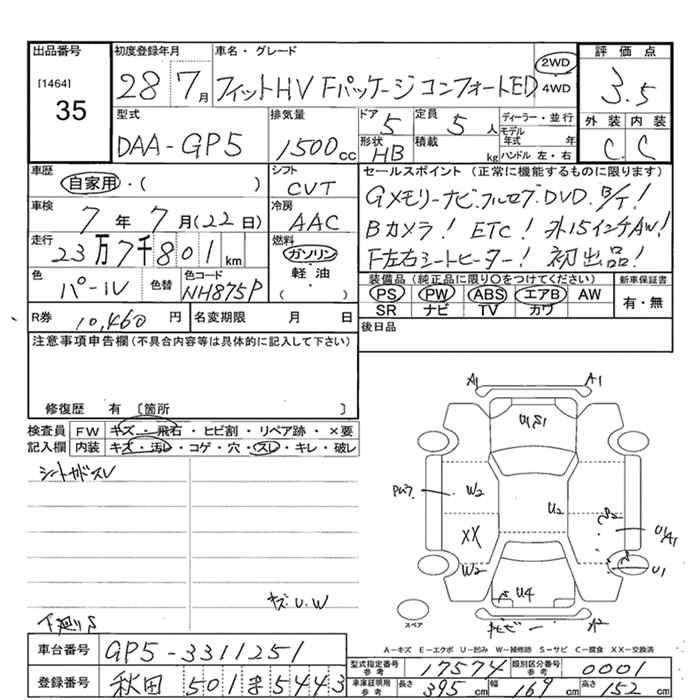 出品番号 初度登録年月 車名・グレード 評価点
[1464] 35 28 7月 フィットHV Fパッケージ コンフォートED 2WD 4WD 3.5
型式 排気量 ドア 5 定員 5人 ディーラー・並行 外装 内装
DAA-GP5 1500cc 形状 HB 積載 kg モデル年式 年 ハンドル 左・右 C. C
車歴 シフト セールスポイント (正常に機能するものに限ります)
自家用・( ) CVT Gメモリーナビ.フルセグ.DVD.B/T!
車検 7年7月(22日) 冷房 AAC Bカメラ! ETC! 外15インチAW!
走行 23万7千801km 燃料 ガソリン・軽油・( ) F左右シートヒーター! 初出品!
色 パール 色替 色コード NH875P 装備品 (純正品に限り○をつけてください) 新車保証書
PS PW ABS エアB AW 有・無
SR ナビ TV カワ
R券 10,460円 名変期限 月 日 後日品
注意事項申告欄 (不具合内容等は具体的に記入して下さい)
修復歴 有 〔箇所 〕
検査員 FW キズ・飛石・ヒビ割・リペア跡・×要
記入欄 内装 キズ・汚レ・コゲ・穴・スレ・キレ・破レ
A1 A1
U1S1
W2 U2 S2
XX U/A1
W2 U1
U4
A2
キズ.U.W
下廻りS
スペア
A-キズ E-エクボ U-凹み W-補修跡 S-サビ C-腐食 XX-交換済
車台番号 GP5-3311251 型式指定番号 参考 17574 類別区分番号 参考 0001
登録番号 秋田 501 ま 5443 車庫証明用 参考 長さ 395cm 幅 169cm 高さ 152cm